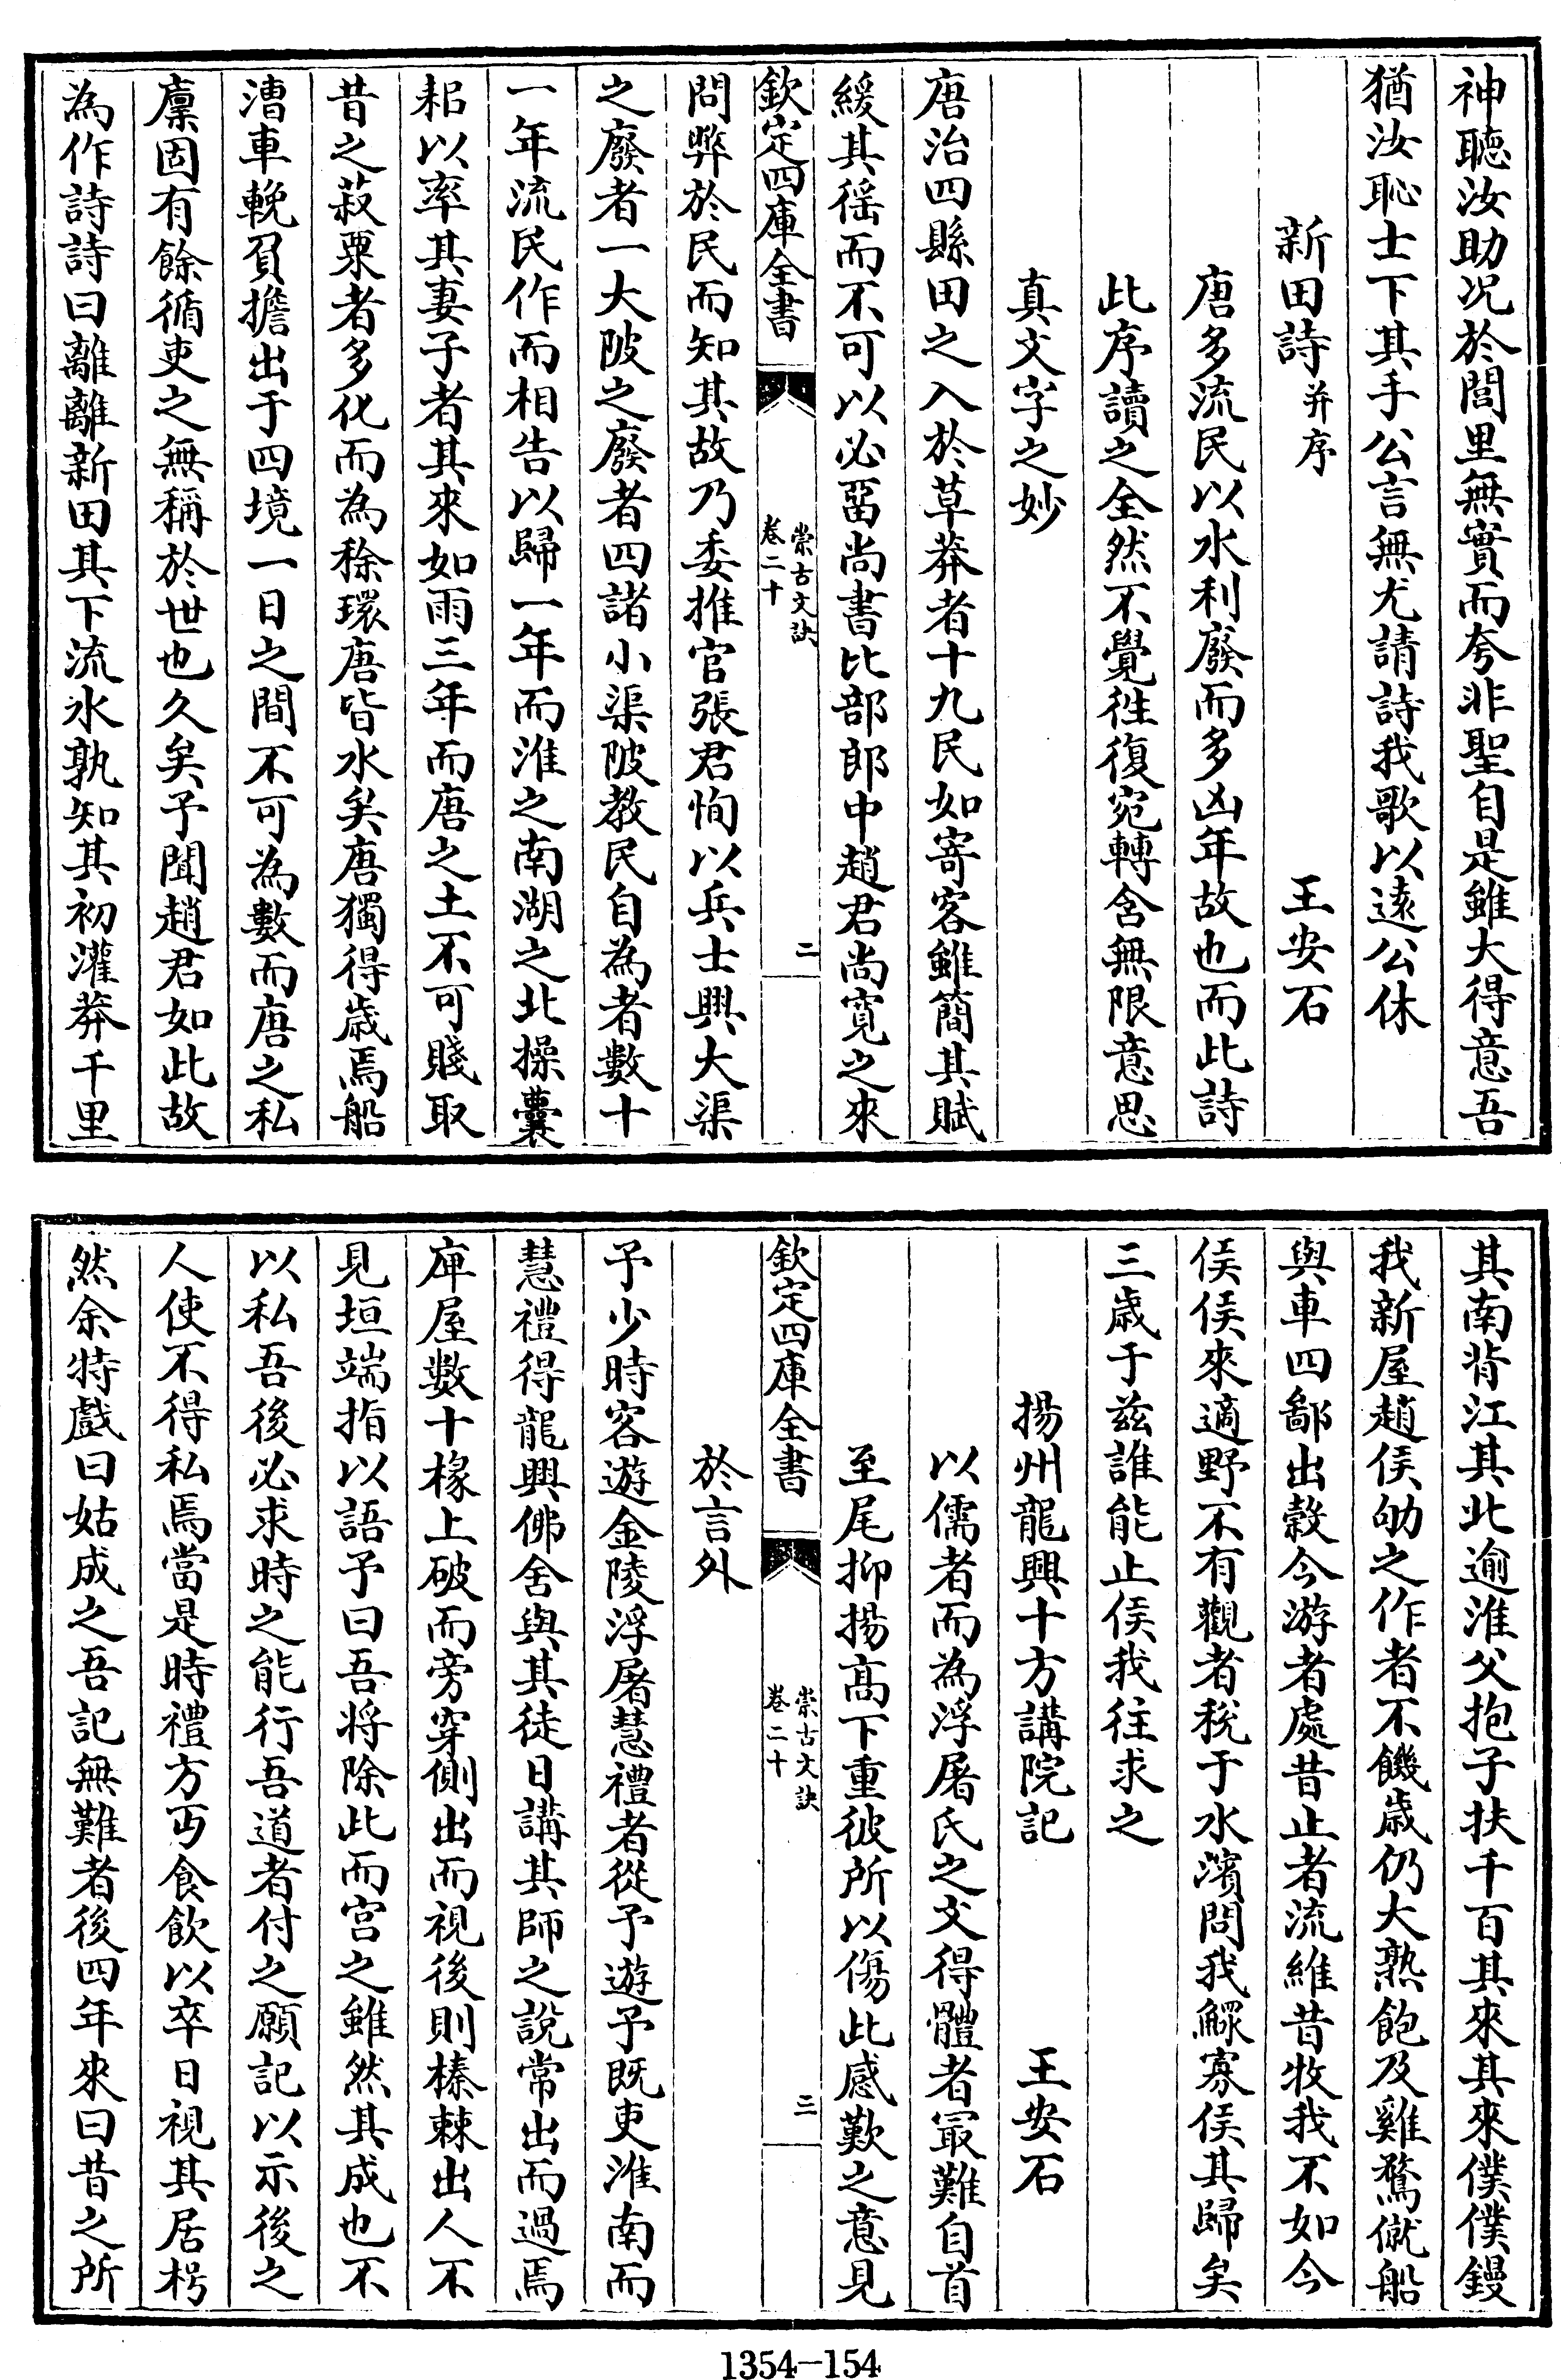 神聽汝助况於閭里無實而夸非聖自是雖大得意吾
猶汝恥士下其手公言無尤請詩我歌以遠公休
新田詩并序 王安石
唐多流民以水利廢而多凶年故也而此詩
此序讀之全然不覺徃復宛轉含無限意思
真文字之妙
唐治四縣田之入於草莽者十九民如寄客雖簡其賦
緩其徭而不可以必畱尚書比部郎中趙君尚寛之來
欽定四庫全書
崇古文訣
卷二十
二
問弊於民而知其故乃委推官張君恂以兵士興大渠
之廢者一大陂之廢者四諸小渠陂教民自為者數十
一年流民作而相告以歸一年而淮之南湖之北操囊
耜以率其妻子者其來如雨三年而唐之土不可賤取
昔之菽粟者多化而為稌環唐皆水矣唐獨得歲焉船
漕車輓負擔出于四境一日之間不可為數而唐之私
廩固有餘循吏之無稱於世也久矣予聞趙君如此故
為作詩詩曰離離新田其下流水孰知其初灌莽千里
其南背江其北逾淮父抱子扶千百其來其來僕僕鏝
我新屋趙侯劬之作者不饑歲仍大熟飽及雞鶩僦船
與車四鄙出穀今游者處昔止者流維昔牧我不如今
侯侯來適野不有觀者稅于水濱問我鰥寡侯其歸矣
三歲于兹誰能止侯我往求之
揚州龍興十方講院記 王安石
以儒者而為浮屠氏之文得體者最難自首
至尾抑揚高下重彼所以傷此感歎之意見
欽定四庫全書
崇古文訣
卷二十
三
於言外
予少時客遊金陵浮屠慧禮者從予遊予既吏淮南而
慧禮得龍興佛舍與其徒日講其師之說常出而過焉
庳屋數十椽上破而旁穿側出而視後則榛棘出人不
見垣端指以語予曰吾将除此而宫之雖然其成也不
以私吾後必求時之能行吾道者付之願記以示後之
人使不得私焉當是時禮方丐食飲以卒日視其居枵
然余特戲曰姑成之吾記無難者後四年來曰昔之所
1354-154